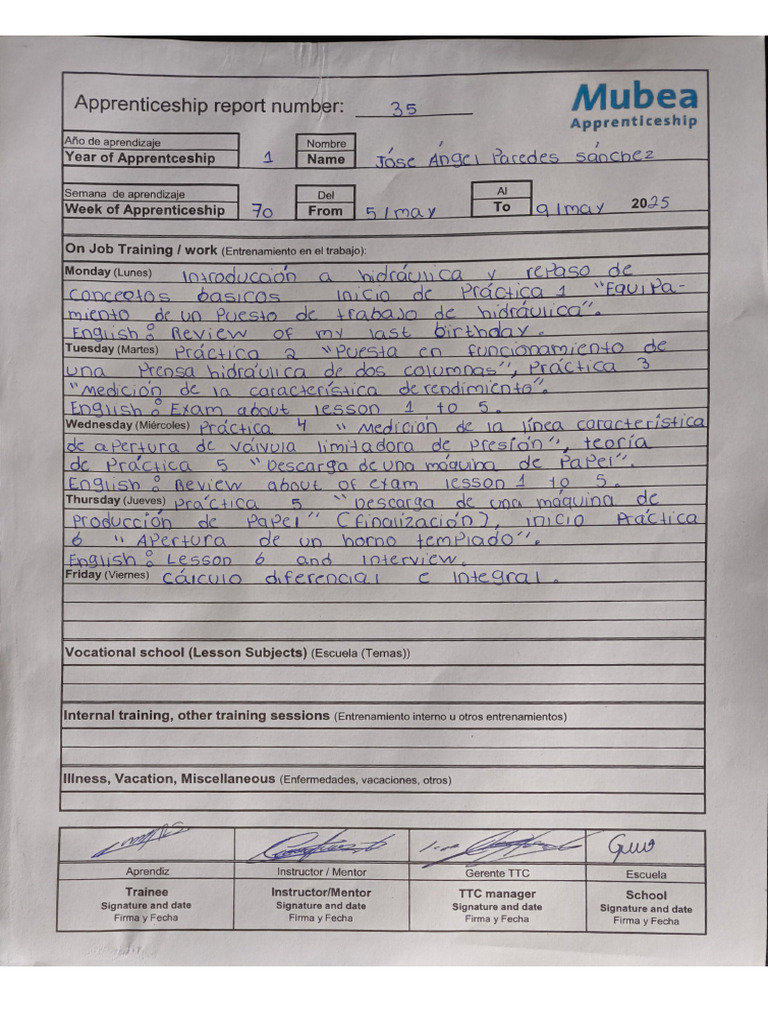 Apprenticeship report number: 35
Mubea
Apprenticeship
Año de aprendizaje
Year of Apprentceship 1
Nombre
Name Jóse Ángel Paredes Sánchez
Semana de aprendizaje
Week of Apprenticeship 70
Del
From 5/may
Al
To 9/may 2025
On Job Training / work (Entrenamiento en el trabajo):
Monday (Lunes) Introducción a hidráulica y repaso de
conceptos basicos inicio de Práctica 1 "Equipa-
miento de un Puesto de trabajo de hidráulica".
English: Review of my last birthday.
Tuesday (Martes) Práctica 2 "Puesta en funcionamiento de
una Prensa hidráulica de dos columnas", Práctica 3
"Medición de la característica de rendimiento".
English: Exam about lesson 1 to 5.
Wednesday (Miércoles) Práctica 4 "Medición de la línea característica
de apertura de válvula limitadora de Presión", teoría
de Práctica 5 "Descarga de una máquina de Papel".
English: Review about of exam lesson 1 to 5.
Thursday (Jueves) Práctica 5 "Descarga de una máquina de
Producción de Papel" (finalización), inicio Práctica
6 "Apertura de un horno templado".
English: Lesson 6 and interview.
Friday (Viernes) Cálculo diferencial e integral.
Vocational school (Lesson Subjects) (Escuela (Temas))
Internal training, other training sessions (Entrenamiento interno u otros entrenamientos)
Illness, Vacation, Miscellaneous (Enfermedades, vacaciones, otros)
Aprendiz
Trainee
Signature and date
Firma y Fecha
Instructor / Mentor
Instructor/Mentor
Signature and date
Firma y Fecha
Gerente TTC
TTC manager
Signature and date
Firma y Fecha
Escuela
School
Signature and date
Firma y Fecha